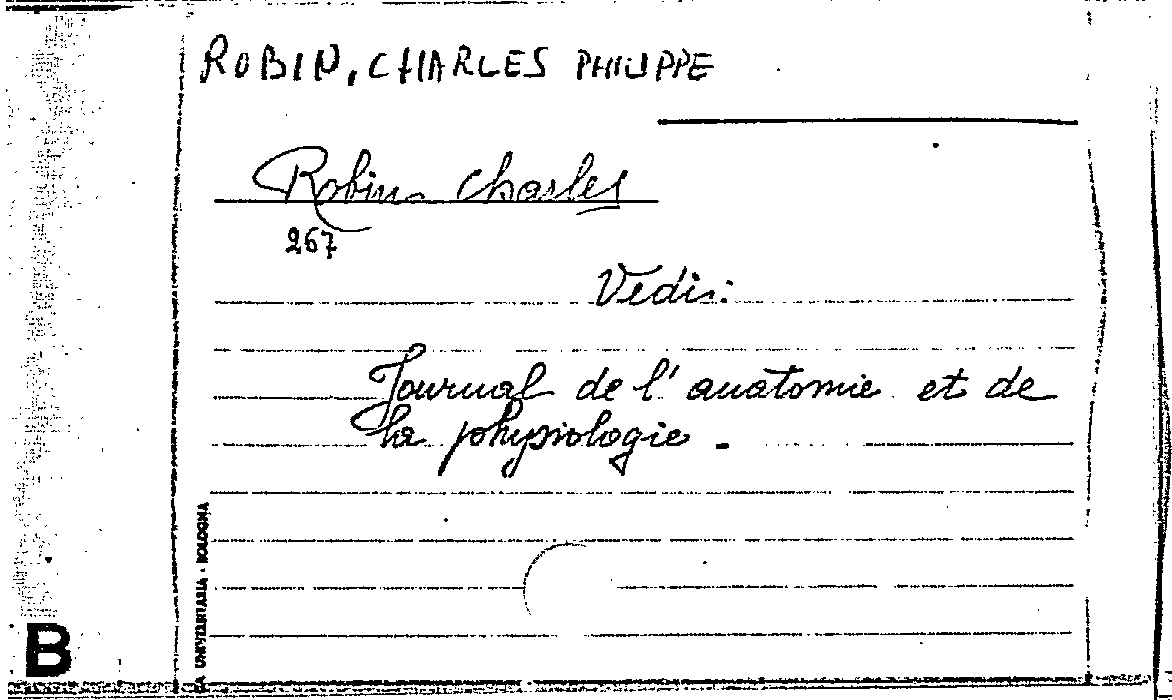 ROBIN, CHARLES PHILIPPE
Robin Charles
267
Vedi:
Journal de l'anatomie et de
la physiologie.
UNIVERSITARIA - BOLOGNA
B